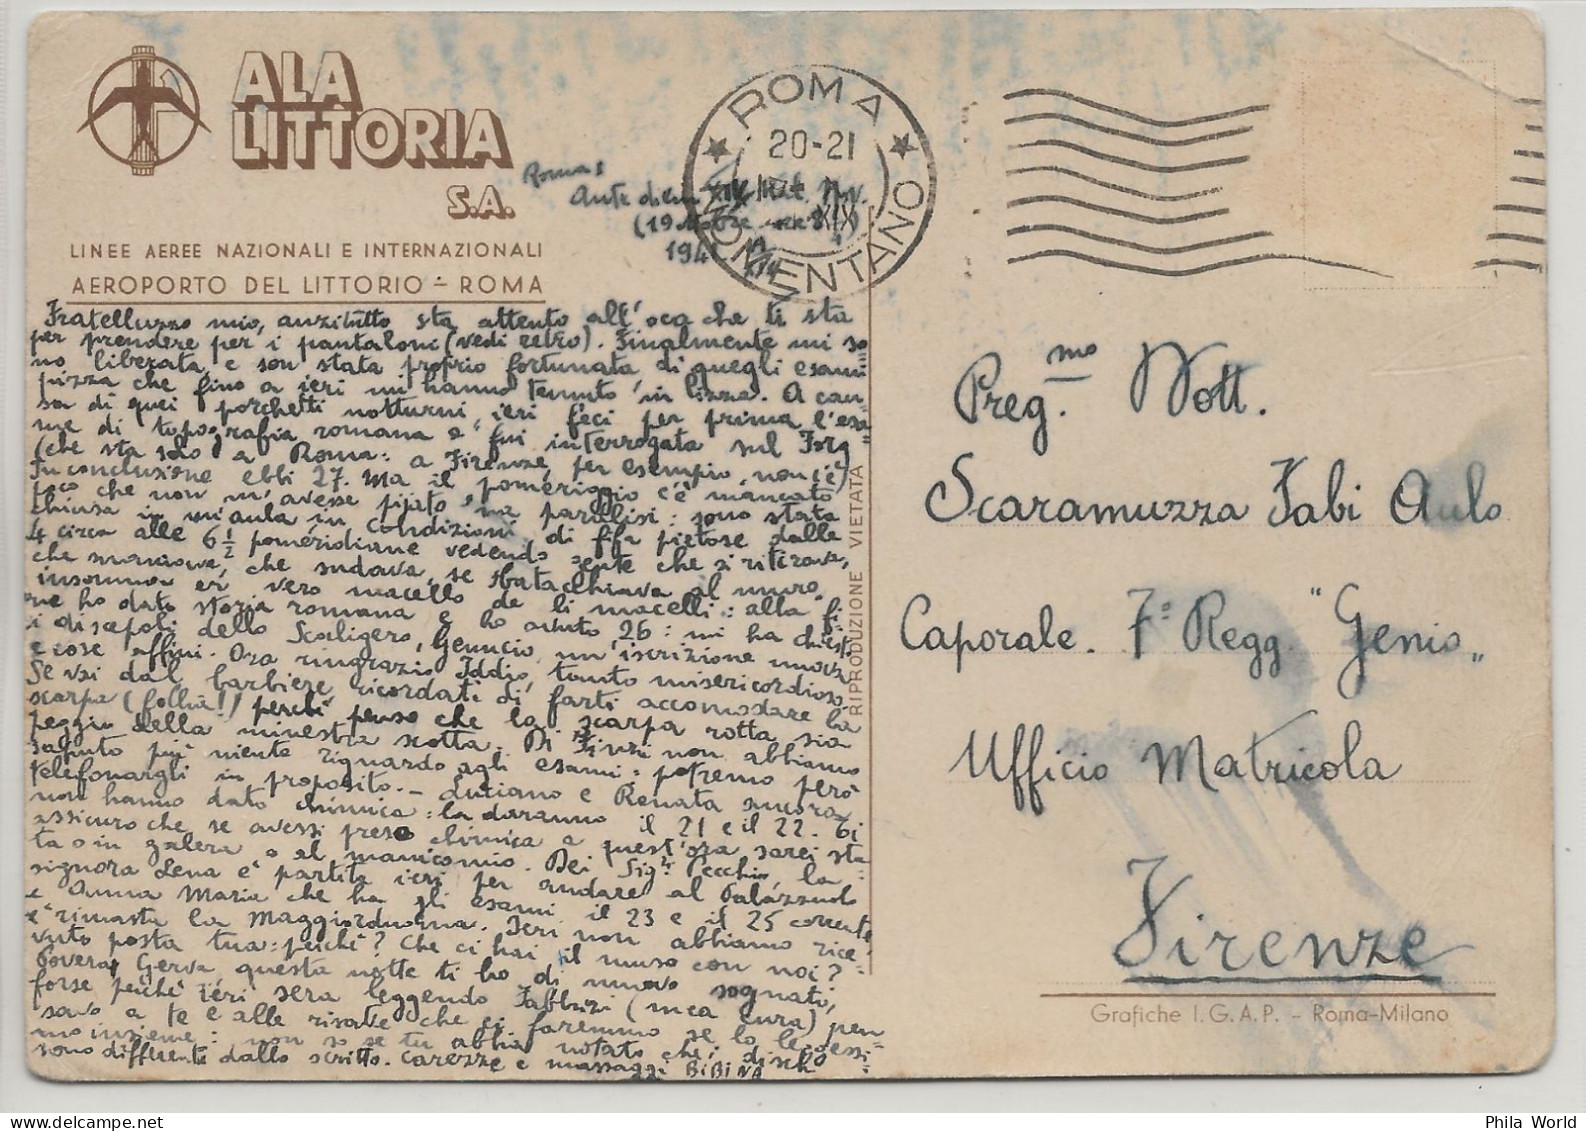 ALA
LITTORIA
S.A.
LINEE AEREE NAZIONALI E INTERNAZIONALI
AEROPORTO DEL LITTORIO - ROMA
ROMA
20-21
XIX
NOMENTANO
Roma
Ante diem XIV Kal. Nov.
(19
1941
Fratelluzzo mio, anzitutto sta attento all'oca che ti sta
per prendere per i pantaloni (vedi retro). Finalmente mi so
no liberata, e son stata proprio fortunata di quegli esami
pizza che fino a ieri mi hanno tenuto in lizza. A cau-
sa di quei porchetti notturni, ieri feci per prima l'esa-
me di topografia romana e fui interrogata sul Foro
(che sta solo a Roma: a Firenze, per esempio, non c'è)
In conclusione ebbi 27. Ma il pomeriggio c'è mancato
poco che non m'avesse pijato 'na paralisi: sono stata
chiusa in un'aula in condizioni di fifa pietose dalle
4 circa alle 6 1/2 pomeridiane vedendo gente che si ritirava,
che smaniava, che sudava, se sbatacchiava al muro,
insomma er vero macello de li macelli: alla fi-
ne ho dato storia romana e ho avuto 26: mi ha chiesto
i discepoli dello Scaligero, Genucio, un'iscrizione nuova
e cose affini. Ora ringrazio Iddio, tanto misericordioso.
Se vai dal barbiere, ricordati di farti accomodare la
scarpa (follia!) perché penso che la scarpa rotta sia
peggio della minestra scotta. Di Finzi non abbiamo
saputo più niente riguardo agli esami: potremo però
telefonargli in proposito. - Luciano e Renata ancora
non hanno dato chimica: la daranno il 21 e il 22. Ti
assicuro che se avessi preso chimica a quest'ora sarei sta
ta o in galera o al manicomio. Dei Sigri Pecchio, la
signora Lena è partita ieri per andare al Palazzuolo
e Anna Maria che ha gli esami il 23 e il 25 corrente
è rimasta la Maggiordoma. Ieri non abbiamo rice-
vuto posta tua: perché? Che ci hai il muso con noi?
Povera Gerva, questa notte ti ho di nuovo sognato,
forse perché ieri sera leggendo Fabbrizi (mea cura) pen
savo a te e alle risate che ci faremmo se lo leggessi-
mo insieme: non so se tu abbia notato che i dischi
sono differenti dallo scritto. Carezze e massaggi BIBINA
RIPRODUZIONE VIETATA
Preg.mo Dott.
Scaramuzza Fabi Aulo
Caporale. 7° Regg. "Genio"
Ufficio Matricola
Firenze
Grafiche I.G.A.P. - Roma-Milano
Phila World